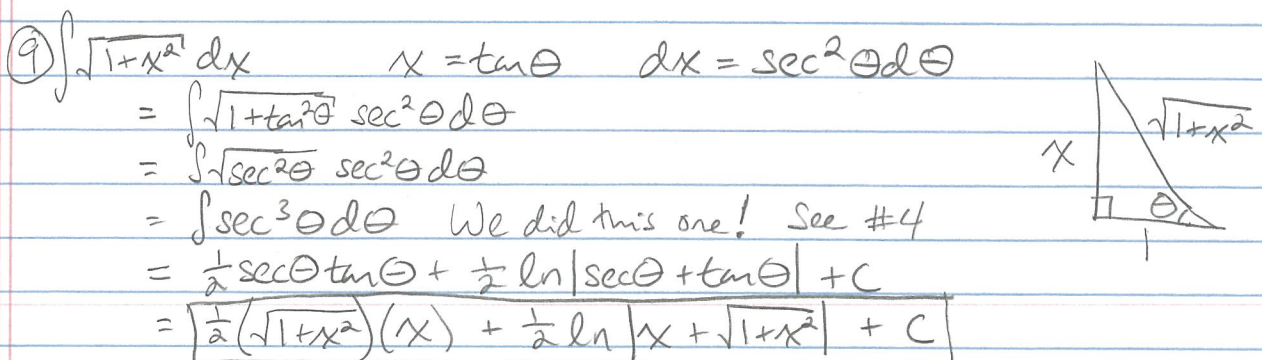 ⑨ ∫√(1+x²) dx x = tanθ dx = sec²θdθ
= ∫√(1+tan²θ) sec²θdθ
= ∫√(sec²θ) sec²θdθ
= ∫sec³θdθ We did this one! See #4
= ½ secθ tanθ + ½ ln|secθ + tanθ| + C
= ½(√(1+x²))(x) + ½ ln|x + √(1+x²)| + C
√(1+x²)
x
θ
1